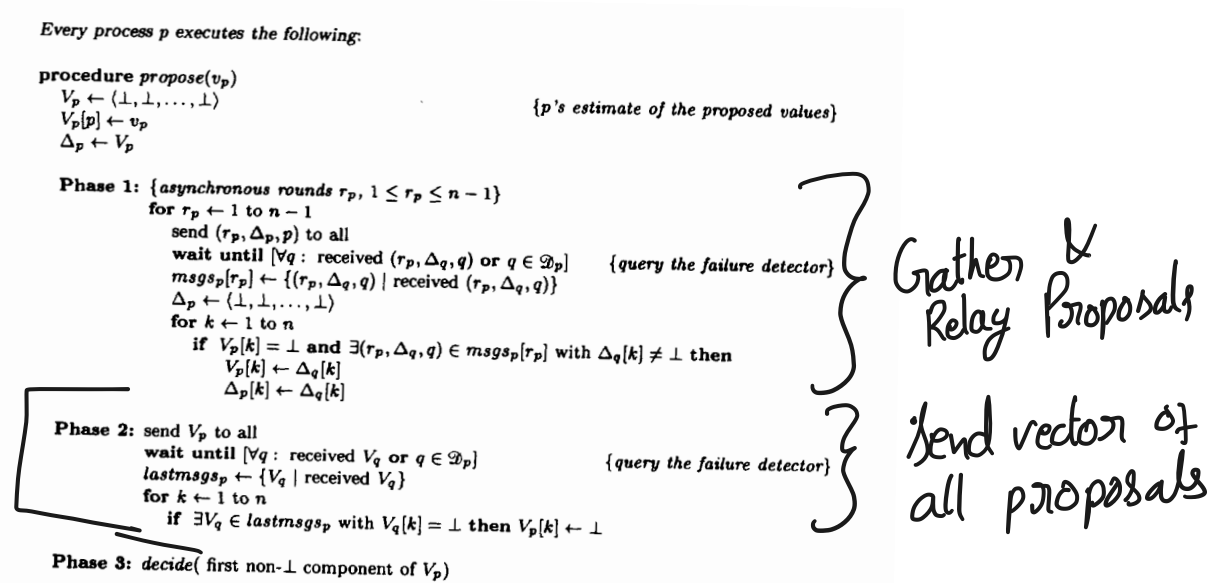 Every process p executes the following:
procedure propose(vₚ)
Vₚ ← ⟨⊥, ⊥, . . . , ⊥⟩ {p's estimate of the proposed values}
Vₚ[p] ← vₚ
Δₚ ← Vₚ
Phase 1: {asynchronous rounds rₚ, 1 ≤ rₚ ≤ n − 1}
for rₚ ← 1 to n − 1
send (rₚ, Δₚ, p) to all
wait until [∀q : received (rₚ, Δ_q, q) or q ∈ 𝒟ₚ] {query the failure detector}
msgsₚ[rₚ] ← {(rₚ, Δ_q, q) | received (rₚ, Δ_q, q)}
Δₚ ← ⟨⊥, ⊥, . . . , ⊥⟩
for k ← 1 to n
if Vₚ[k] = ⊥ and ∃(rₚ, Δ_q, q) ∈ msgsₚ[rₚ] with Δ_q[k] ≠ ⊥ then
Vₚ[k] ← Δ_q[k]
Δₚ[k] ← Δ_q[k]
Gather &
Relay Proposals
Phase 2: send Vₚ to all
wait until [∀q : received V_q or q ∈ 𝒟ₚ] {query the failure detector}
lastmsgsₚ ← {V_q | received V_q}
for k ← 1 to n
if ∃V_q ∈ lastmsgsₚ with V_q[k] = ⊥ then Vₚ[k] ← ⊥
Send vector of
all proposals
Phase 3: decide( first non-⊥ component of Vₚ)